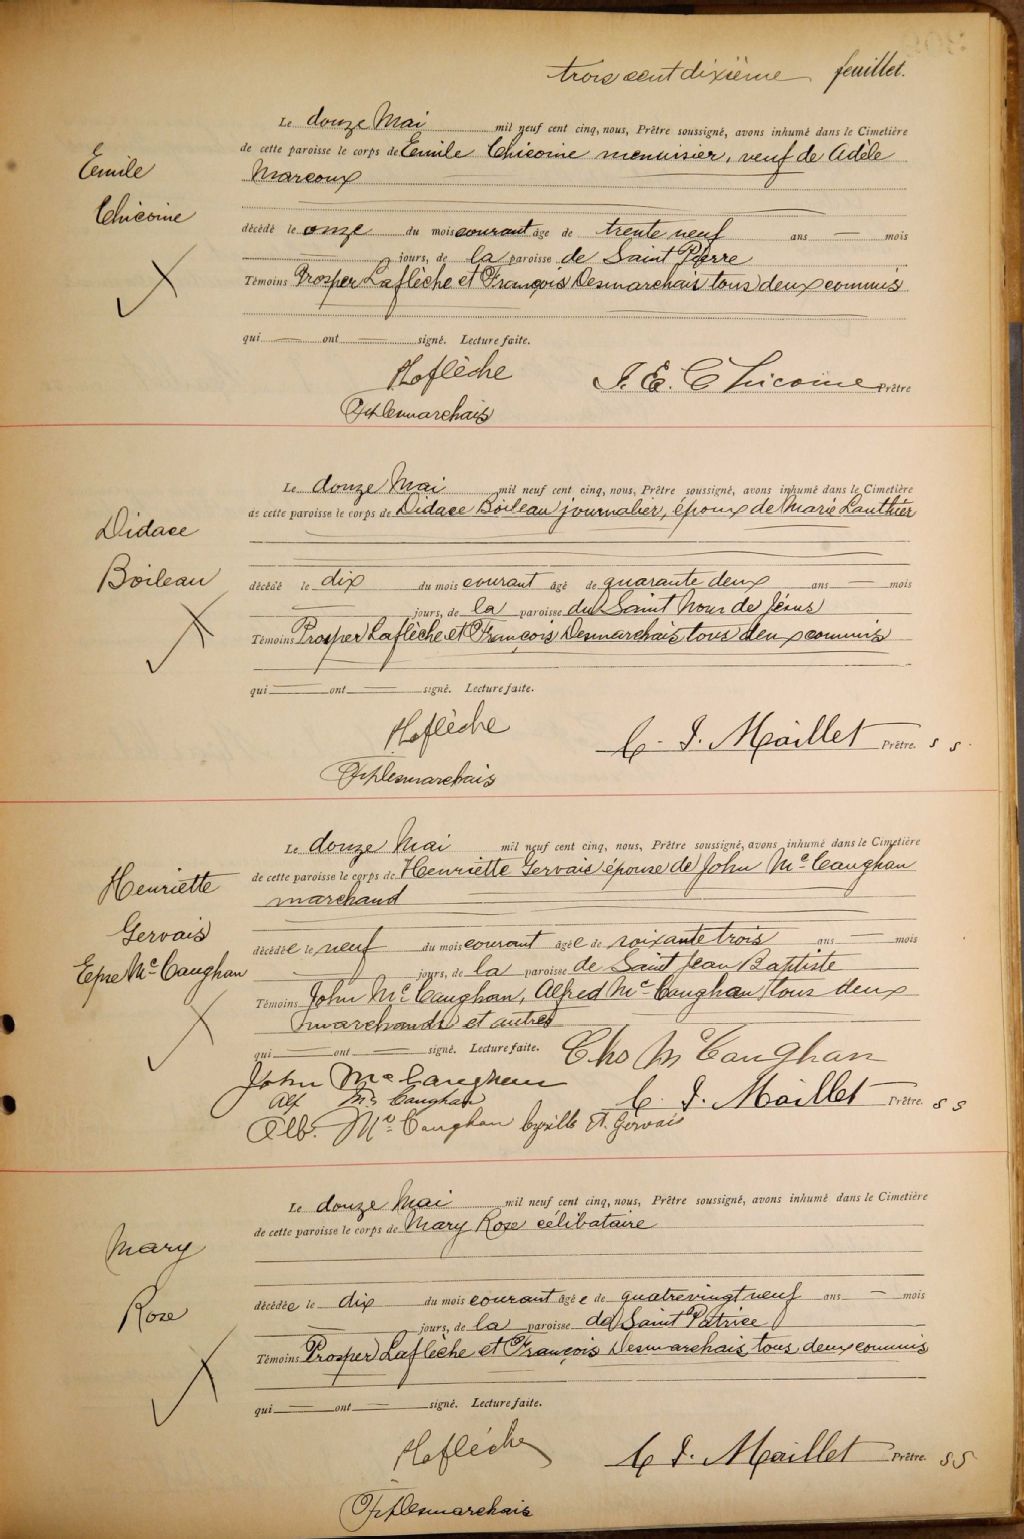 trois cent dixième feuillet.
Le douze Mai mil neuf cent cinq, nous, Prêtre soussigné, avons inhumé dans le Cimetière
de cette paroisse le corps de Emile Chicoine menuisier, veuf de Adèle
Marcoux
Emile
Chicoine
décédé le onze du mois courant âgé de trente neuf ans — mois
— jours, de la paroisse de Saint Pierre
Témoins Prosper Laflèche et François Desmarchais tous deux commis
qui — ont — signé. Lecture faite.
PLaflèche
J. E. Chicoine Prêtre
Frs Desmarchais
Le douze Mai mil neuf cent cinq, nous, Prêtre soussigné, avons inhumé dans le Cimetière
de cette paroisse le corps de Didace Boileau journalier, époux de Marie Lauthier
Didace
Boileau
décédé le dix du mois courant âgé de quarante deux ans — mois
— jours, de la paroisse du Saint Nom de Jésus
Témoins Prosper Laflèche et François Desmarchais tous deux commis
qui — ont — signé. Lecture faite.
PLaflèche
C. J. Maillet Prêtre. s s.
Frs Desmarchais
Le douze Mai mil neuf cent cinq, nous, Prêtre soussigné, avons inhumé dans le Cimetière
de cette paroisse le corps de Henriette Gervais épouse de John Mc Caughan
marchand
Henriette
Gervais
Epse Mc Caughan
décédée le neuf du mois courant âgée de soixante trois ans — mois
— jours, de la paroisse de Saint Jean Baptiste
Témoins John Mc Caughan, Alfred Mc Caughan tous deux
marchands et autres
qui — ont — signé. Lecture faite. Chs Mc Caughan
John Mc Caughan
Alf Mc Caughan
C. J. Maillet Prêtre. s s
Alb. Mc Caughan Cyrille A. Gervais
Le douze Mai mil neuf cent cinq, nous, Prêtre soussigné, avons inhumé dans le Cimetière
de cette paroisse le corps de Mary Rose célibataire
Mary
Rose
décédée le dix du mois courant âgée de quatrevingt neuf ans — mois
— jours, de la paroisse de Saint Patrice
Témoins Prosper Laflèche et François Desmarchais tous deux commis
qui — ont — signé. Lecture faite.
PLaflèche
C. J. Maillet Prêtre. s s
Frs Desmarchais